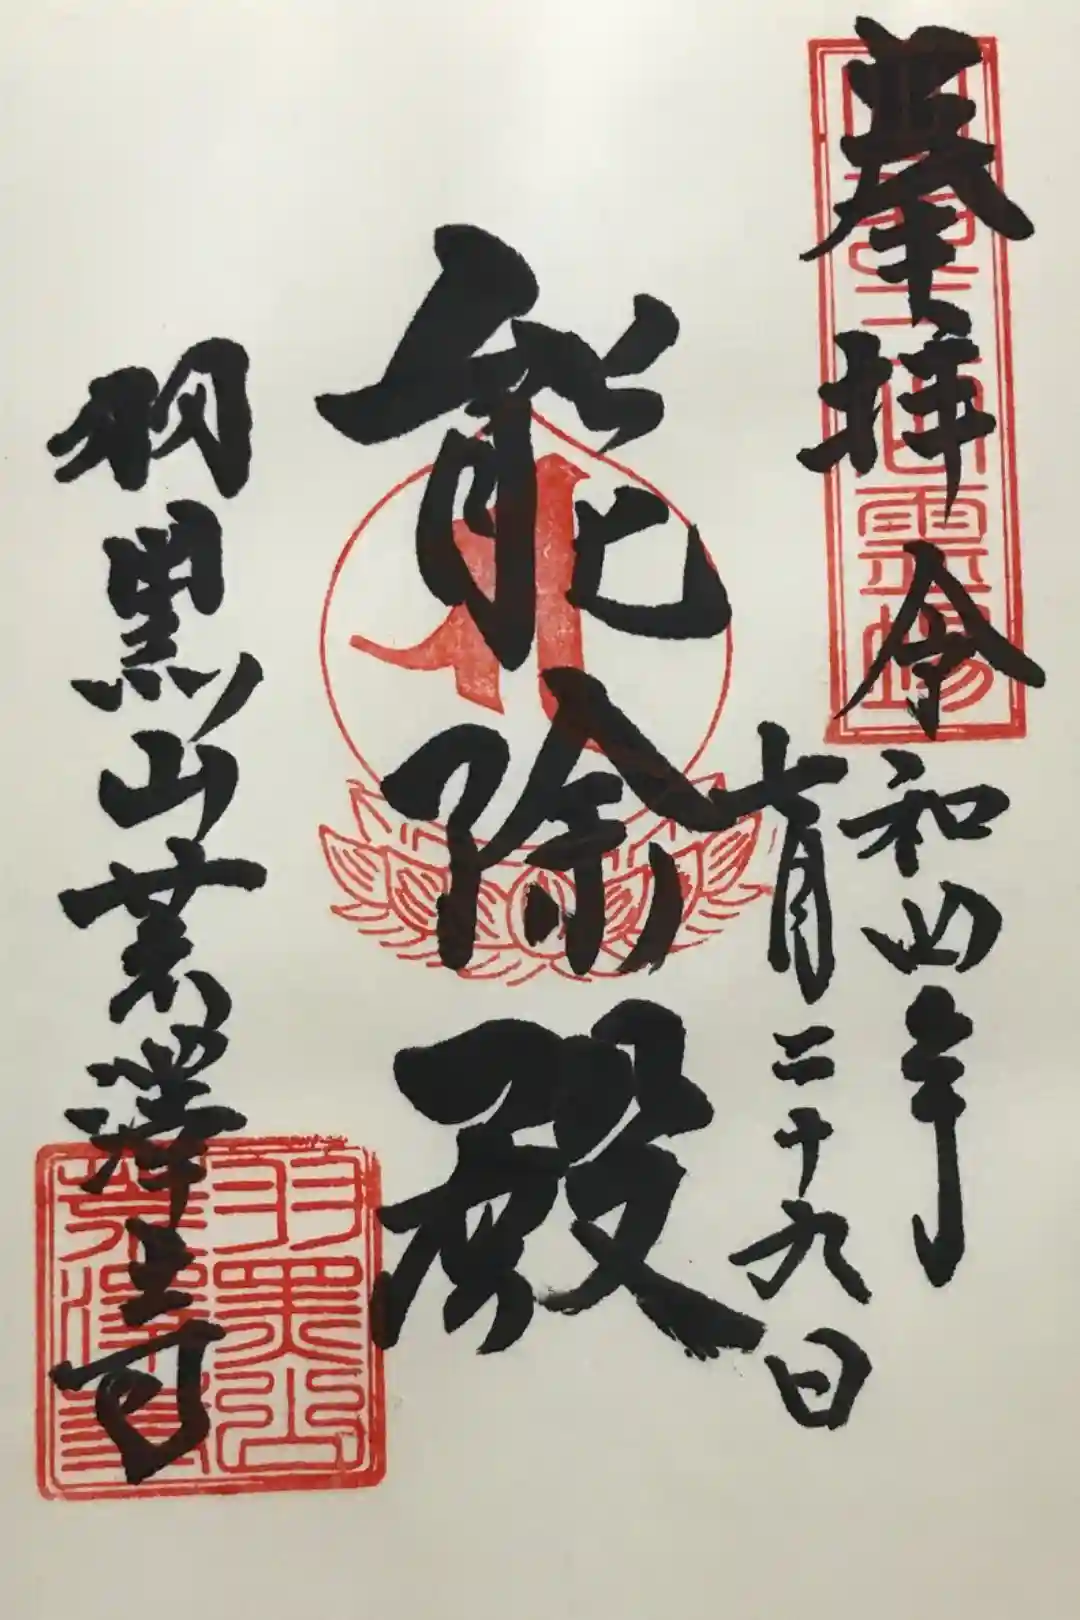 奉拝
令和四年
七月二十九日
能除殿
羽黒山荒澤寺
出羽三山霊場
羽黒山
荒澤寺